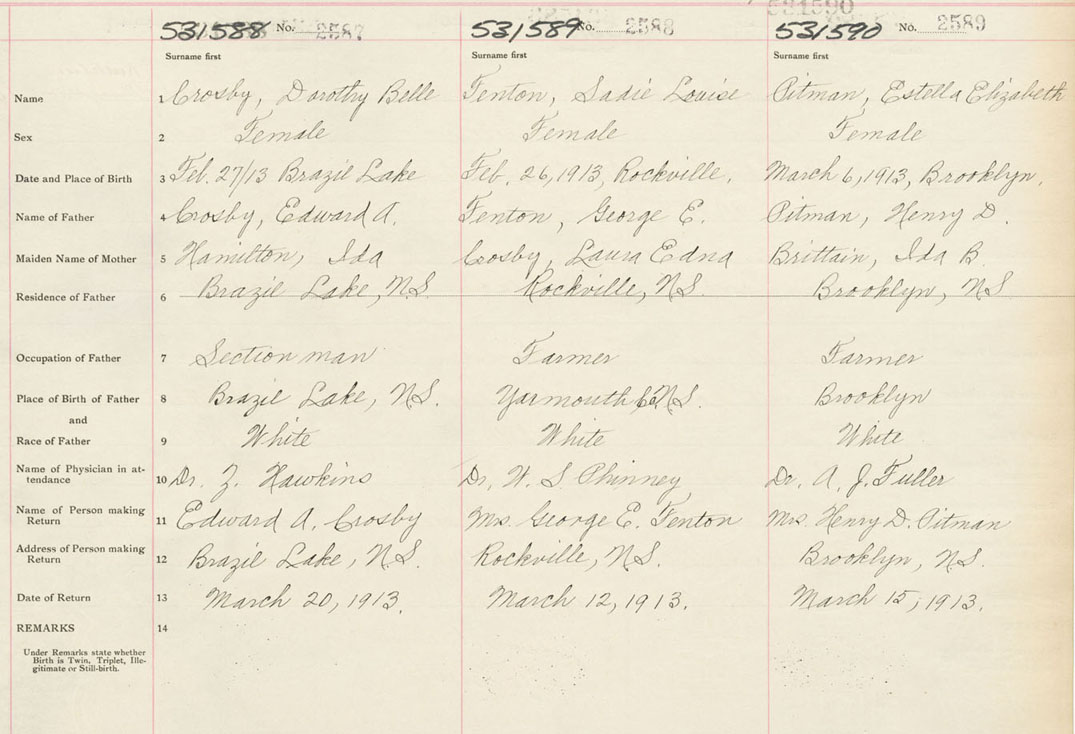 531590
531588 No. 2587 531589 No. 2588 531590 No. 2589
Surname first Surname first Surname first
Name 1 Crosby, Dorothy Belle Fenton, Sadie Louise Pitman, Estella Elizabeth
Sex 2 Female Female Female
Date and Place of Birth 3 Feb. 27/13 Brazil Lake Feb. 26, 1913, Rockville. March 6, 1913, Brooklyn.
Name of Father 4 Crosby, Edward A. Fenton, George E. Pitman, Henry D.
Maiden Name of Mother 5 Hamilton, Ida Crosby, Laura Edna Brittain, Ida B.
Residence of Father 6 Brazil Lake, N.S. Rockville, N.S. Brooklyn, N.S.
Occupation of Father 7 Section man Farmer Farmer
Place of Birth of Father 8 Brazil Lake, N.S. Yarmouth Co. N.S. Brooklyn
and
Race of Father 9 White White White
Name of Physician in at-
tendance 10 Dr. Z. Hawkins Dr. W. S. Phinney Dr. A. J. Fuller
Name of Person making
Return 11 Edward A. Crosby Mrs. George E. Fenton Mrs. Henry D. Pitman
Address of Person making
Return 12 Brazil Lake, N.S. Rockville, N.S. Brooklyn, N.S.
Date of Return 13 March 20, 1913. March 12, 1913. March 15, 1913.
REMARKS 14
Under Remarks state whether
Birth is Twin, Triplet, Ille-
gitimate or Still-birth.